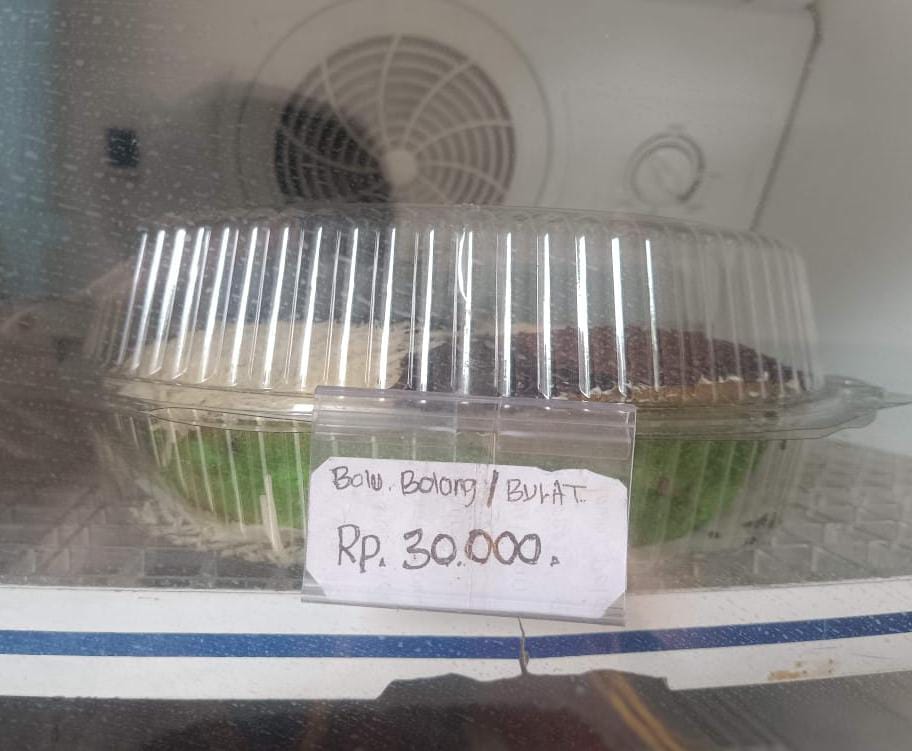 Bolu. Bolong / BULAT.
Rp. 30.000.